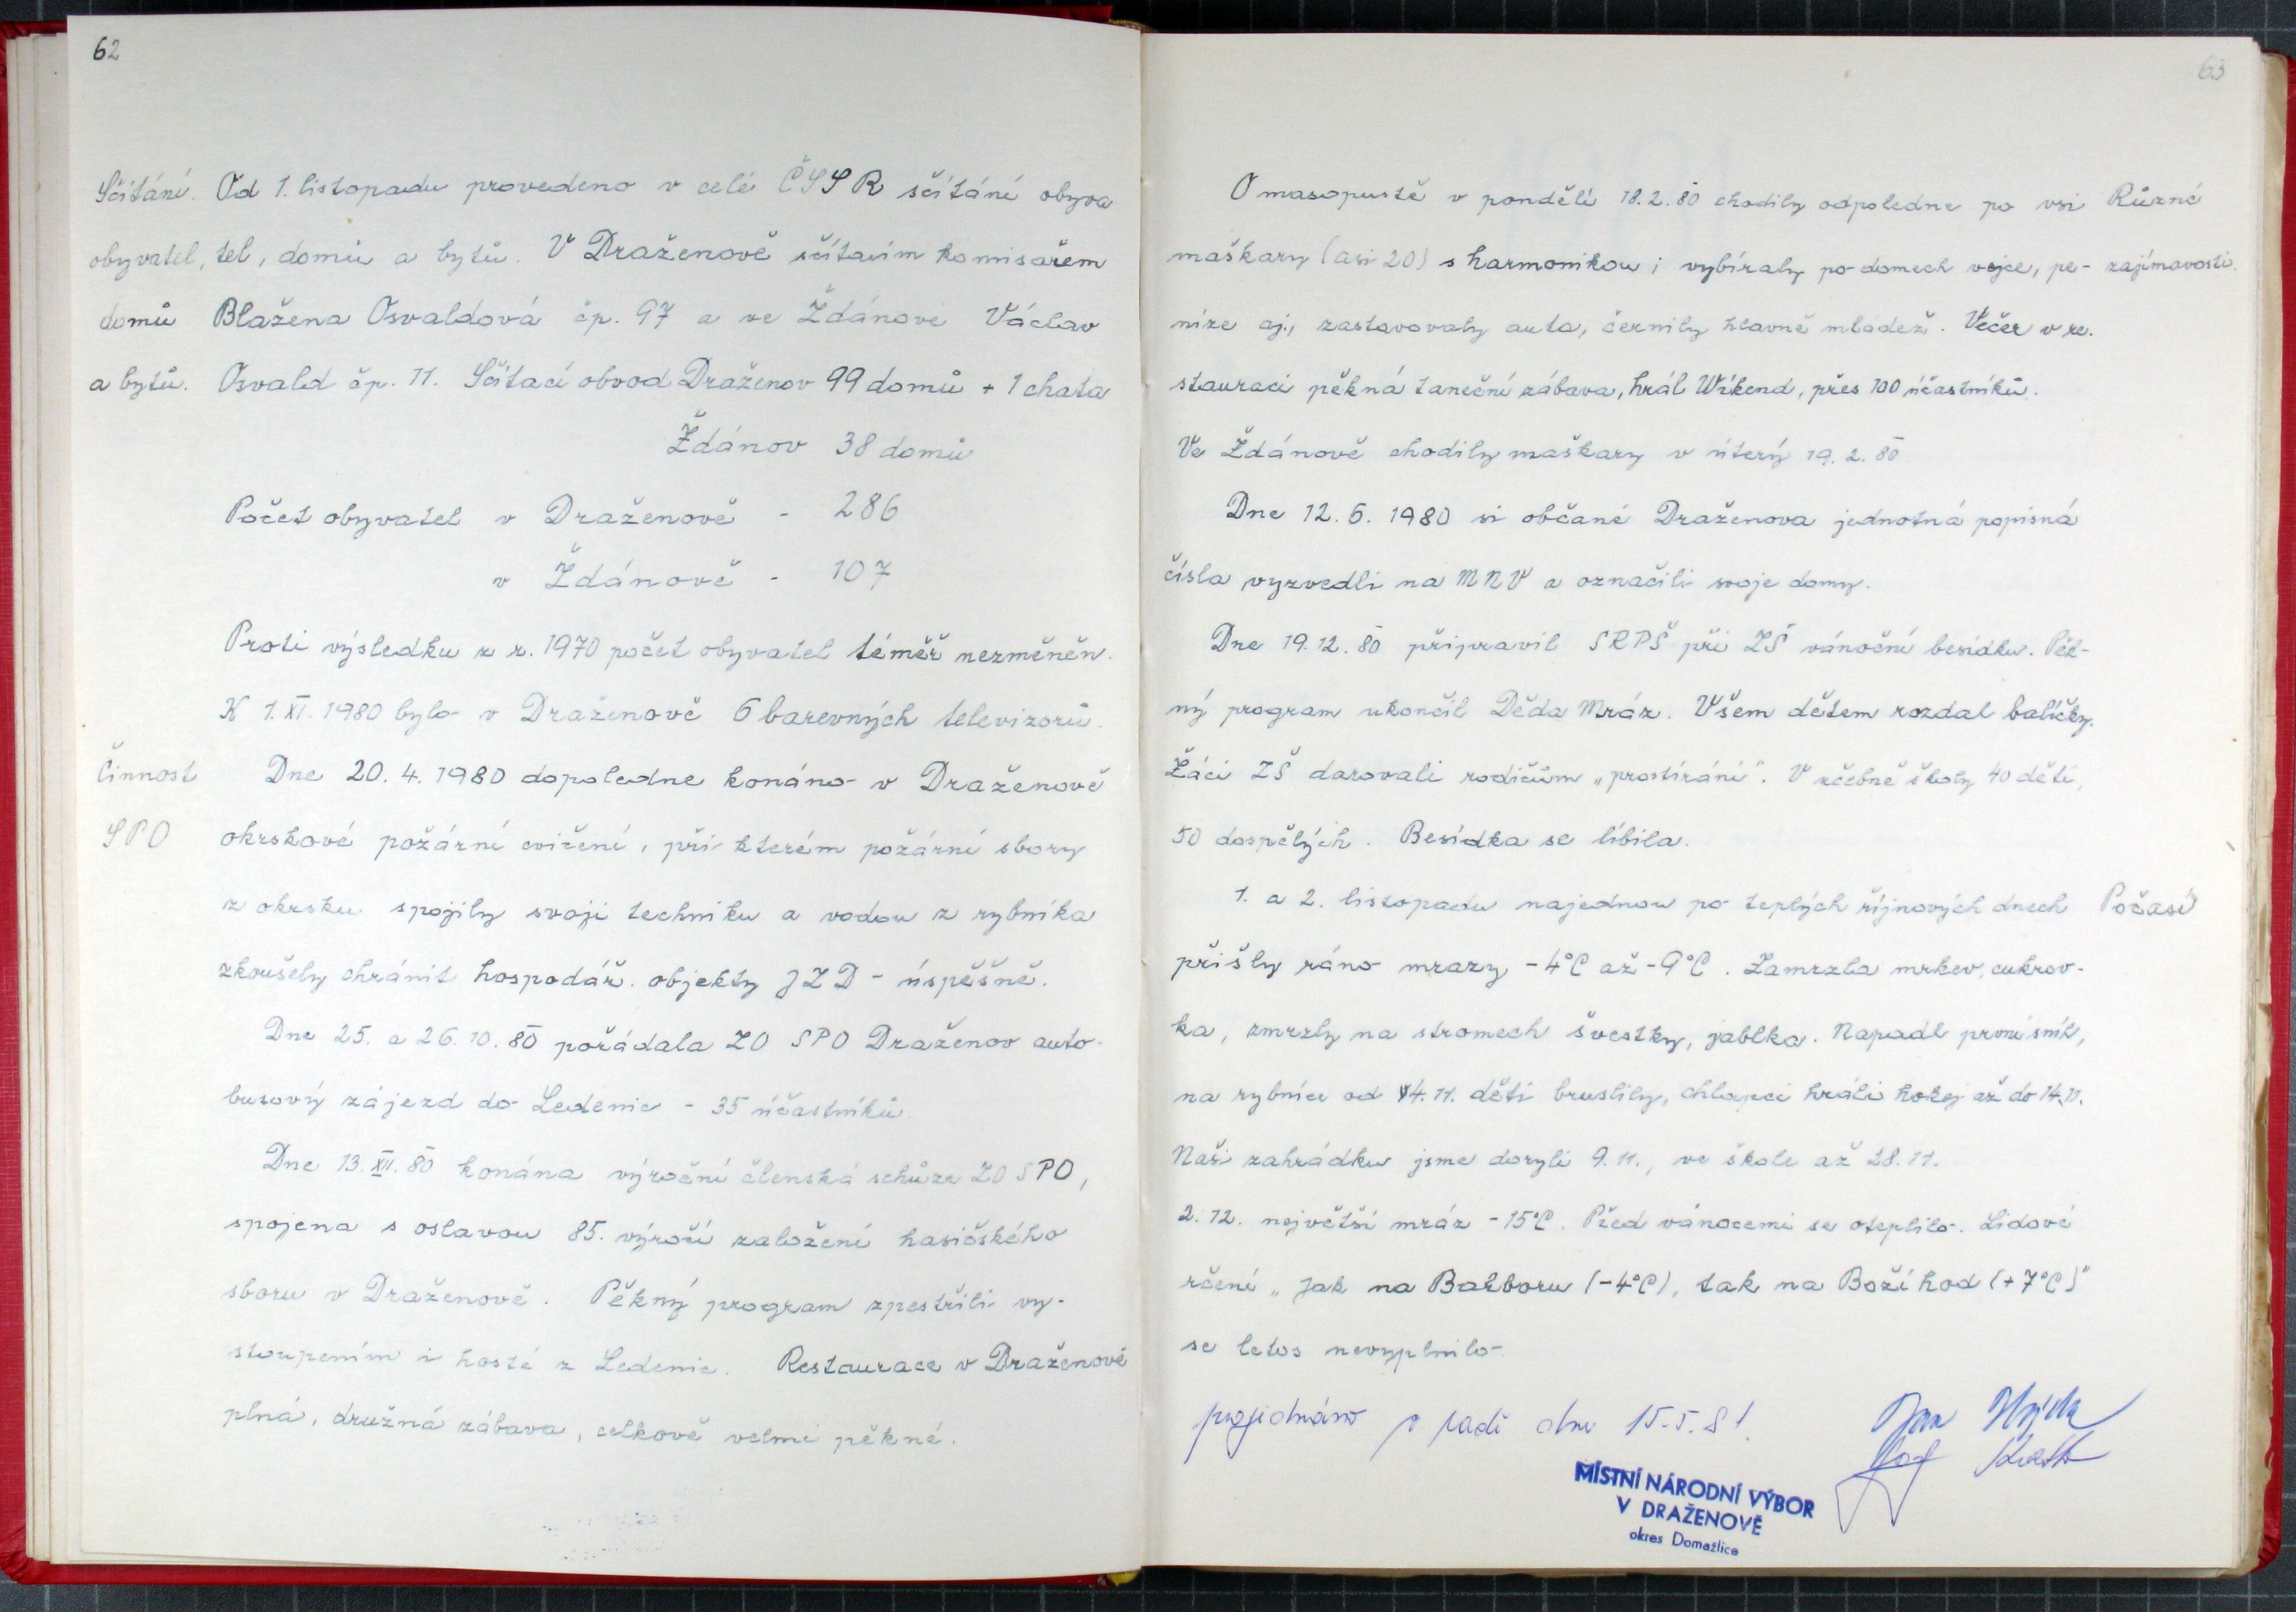 62
Sčítání
obyvatel,
domů
a bytů.
Od 1. listopadu provedeno v celé ČSSR sčítání obyva
tel, domů a bytů. V Draženově sčítacím komisařem
Blažena Osvaldová čp. 97 a ve Ždánově Václav
Osvald čp. 11. Sčítací obvod Draženov 99 domů + 1 chata
Ždánov 38 domů
Počet obyvatel v Draženově - 286
v Ždánově - 107
Proti výsledku z r. 1970 počet obyvatel téměř nezměněn.
K 1. XI. 1980 bylo v Draženově 6 barevných televizorů.
Činnost
SPO
Dne 20. 4. 1980 dopoledne konáno v Draženově
okrskové požární cvičení, při kterém požární sbory
z okrsku spojily svoji techniku a vodou z rybníka
zkoušely chránit hospodář. objekty JZD - úspěšně.
Dne 25. a 26. 10. 80 pořádala ZO SPO Draženov auto-
busový zájezd do Ledenic - 35 účastníků.
Dne 13. XII. 80 konána výroční členská schůze ZO SPO,
spojena s oslavou 85. výročí založení hasičského
sboru v Draženově. Pěkný program zpestřili vy-
stoupením i hosté z Ledenic. Restaurace v Draženově
plná, družná zábava, celkově velmi pěkné.
63
O masopustě v pondělí 18. 2. 80 chodily odpoledne po vsi
maškary (asi 20) s harmonikou i vybíraly po domech vejce, pe-
níze aj., zastavovaly auta, černily hlavně mládež. Večer v re-
stauraci pěkná taneční zábava, hrál Víkend, přes 100 účastníků.
Různé
zajímavosti.
Ve Ždánově chodily maškary v úterý 19. 2. 80
Dne 12. 6. 1980 si občané Draženova jednotná popisná
čísla vyzvedli na MNV a označili svoje domy.
Dne 19. 12. 80 připravil SRPŠ při ZŠ vánoční besídku. Pěk-
ný program ukončil Děda Mráz. Všem dětem rozdal balíčky.
Žáci ZŠ darovali rodičům „prostírání". V učebně školy 40 dětí,
50 dospělých. Besídka se líbila.
1. a 2. listopadu najednou po teplých říjnových dnech
Počasí
přišly ráno mrazy -4°C až -9°C. Zamrzla mrkev, cukrov-
ka, zmrzly na stromech švestky, jablka. Napadl první sníh,
na rybníce od 4. 11. děti bruslily, chlapci hráli hokej až do 14. 11.
Naši zahrádku jsme doryli 9. 11., ve škole až 28. 11.
2. 12. největší mráz -15°C. Před vánocemi se oteplilo. Lidové
rčení „Jak na Barboru (-4°C), tak na Boží hod (+7°C)"
se letos nevyplnilo.
projednáno v radě dne 15. 5. 81
Jan
MÍSTNÍ NÁRODNÍ VÝBOR
V DRAŽENOVĚ
okres Domažlice